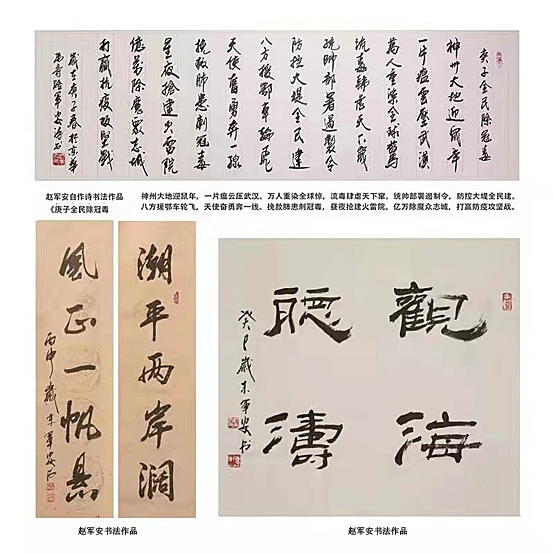 庚子全民除冠毒
神州大地迎鼠年
一片瘟雲壓武漢
萬人重染全球驚
流毒肆虐天下竄
统帥部署遏製令
防控大堤全民建
八方援鄂車輪飛
天使奮勇奔一線
挽救肺患刺冠毒
星夜搶建火雷院
億萬除魔眾志城
打赢抗疫攻堅戰
歲在庚子春於京華
軍安
赵军安自作诗书法作品
《庚子全民除冠毒
神州大地迎鼠年，一片瘟云压武汉。万人重染全球惊，流毒肆虐天下窜。统帅部署遏制令，防控大堤全民建。
八方援鄂车轮飞，天使奋勇奔一线。挽救肺患刺冠毒，昼夜抢建火雷院，亿万除魔众志城，打赢防疫攻坚战。
潮平两岸濶
風正一帆悬
丙申歲末軍安书
觀海
聽濤
癸巳歲末軍安书
赵军安书法作品
赵军安书法作品